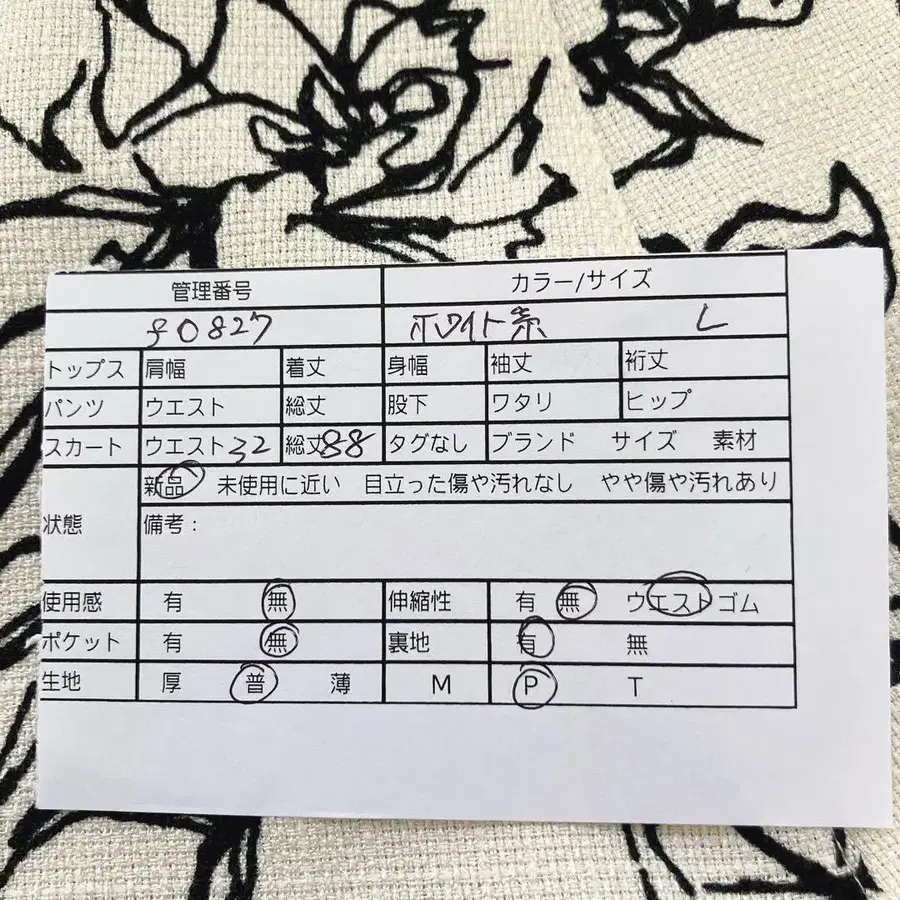 管理番号 カラー/サイズ
90827 ホワイト系 L
トップス 肩幅 着丈 身幅 袖丈 裄丈
パンツ ウエスト 総丈 股下 ワタリ ヒップ
スカート ウエスト32 総丈88 タグなし ブランド サイズ 素材
状態 新品 未使用に近い 目立った傷や汚れなし やや傷や汚れあり
備考:
使用感 有 無 伸縮性 有 無 ウエストゴム
ポケット 有 無 裏地 有 無
生地 厚 普 薄 M P T